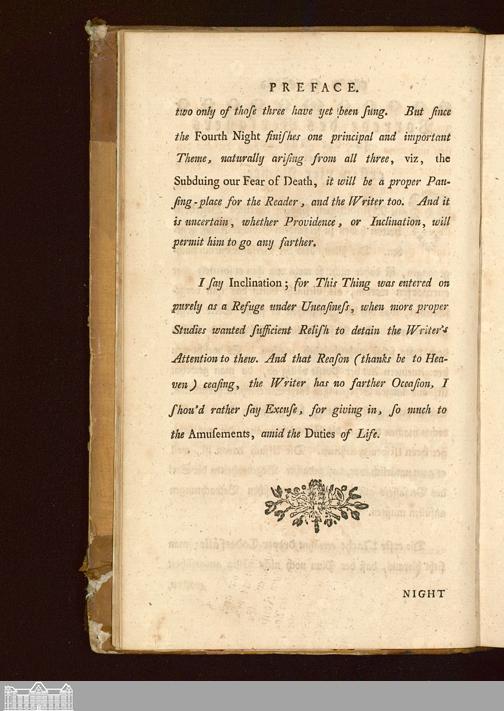 PREFACE.
two only of thoſe three have yet been ſung. But ſince
the Fourth Night finiſhes one principal and important
Theme, naturally ariſing from all three, viz, the
Subduing our Fear of Death, it will be a proper Pau-
ſing-place for the Reader, and the Writer too. And it
is uncertain, whether Providence, or Inclination, will
permit him to go any farther.
I ſay Inclination; for This Thing was entered on
purely as a Refuge under Uneaſineſs, when more proper
Studies wanted ſufficient Reliſh to detain the Writer's
Attention to thew. And that Reaſon (thanks be to Hea-
ven) ceaſing, the Writer has no farther Occaſion, I
ſhou'd rather ſay Excuſe, for giving in, ſo much to
the Amuſements, amid the Duties of Life.
NIGHT